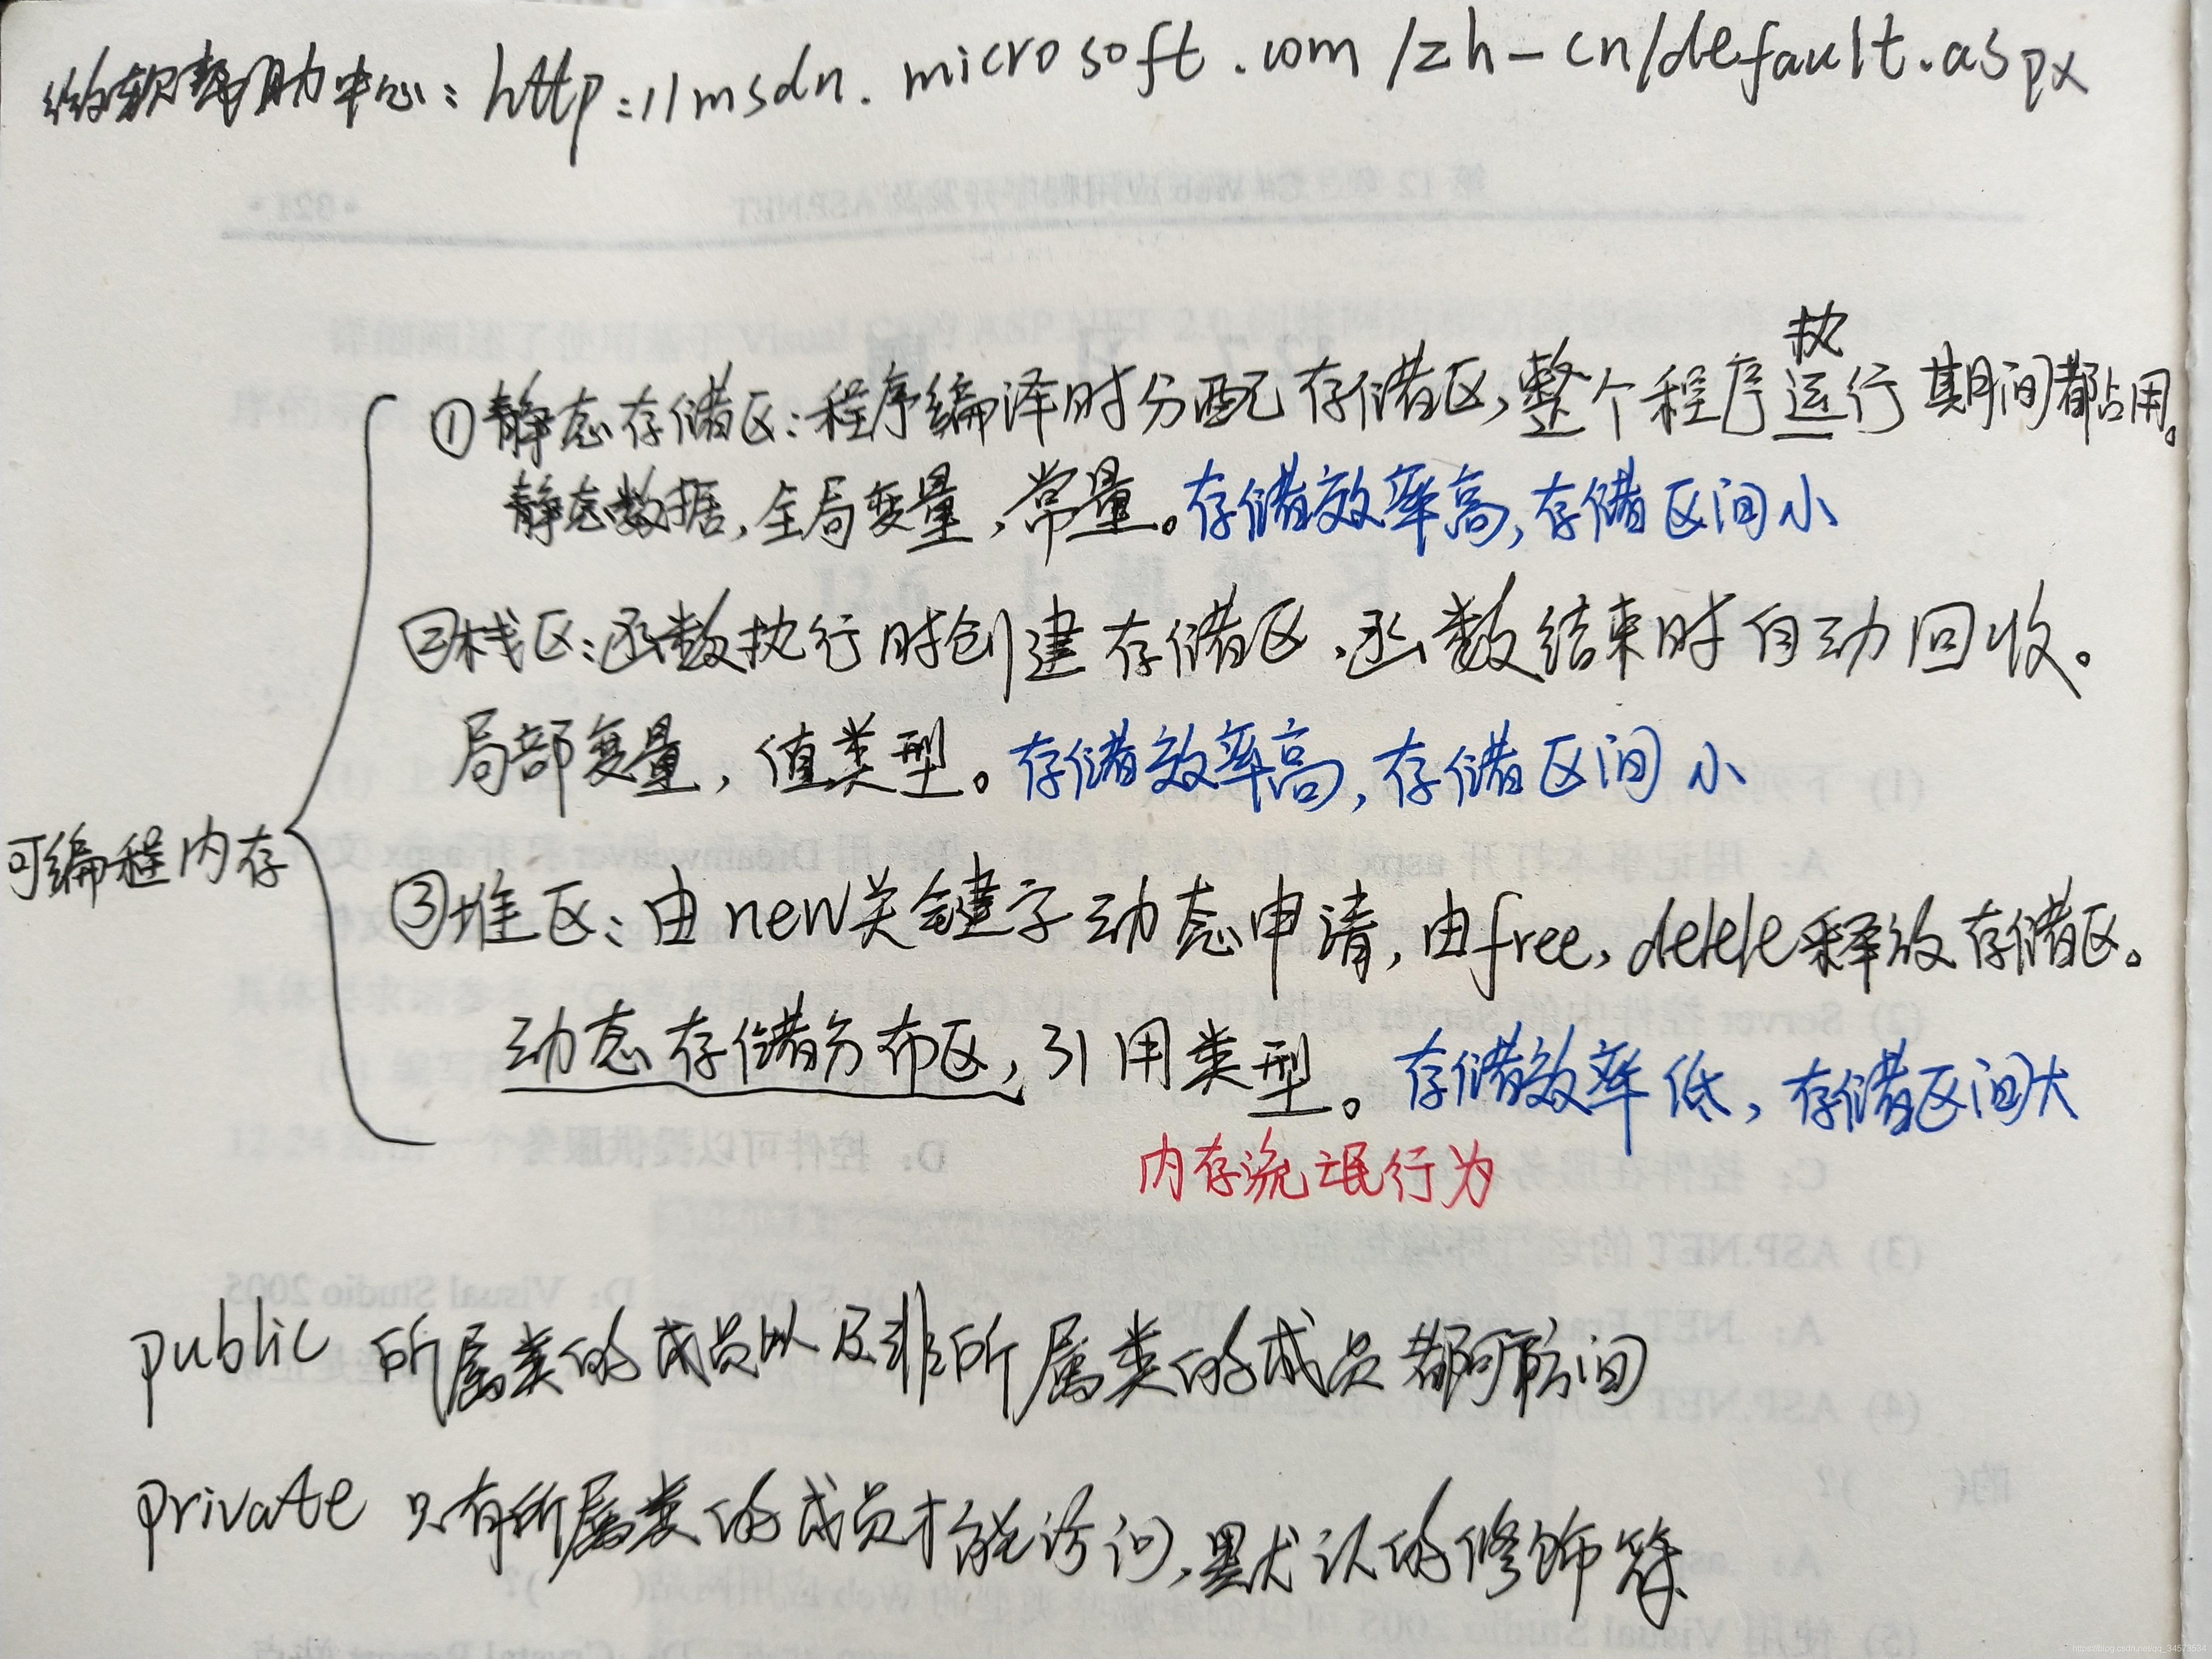 微软帮助中心：http://msdn.microsoft.com/zh-cn/default.aspx
执
①静态存储区：程序编译时分配存储区，整个程序运行期间都占用。
静态数据，全局变量，常量。存储效率高，存储区间小
②栈区：函数执行时创建存储区，函数结束时自动回收。
局部变量，值类型。存储效率高，存储区间小
可编程内存
③堆区：由new关键字动态申请，由free，delele释放存储区。
动态存储分布区，引用类型。存储效率低，存储区间大
内存流氓行为
public 所属类的成员以及非所属类的成员都可访问
private 只有所属类的成员才能访问，默认的修饰符
https://blog.csdn.net/qq_34573534